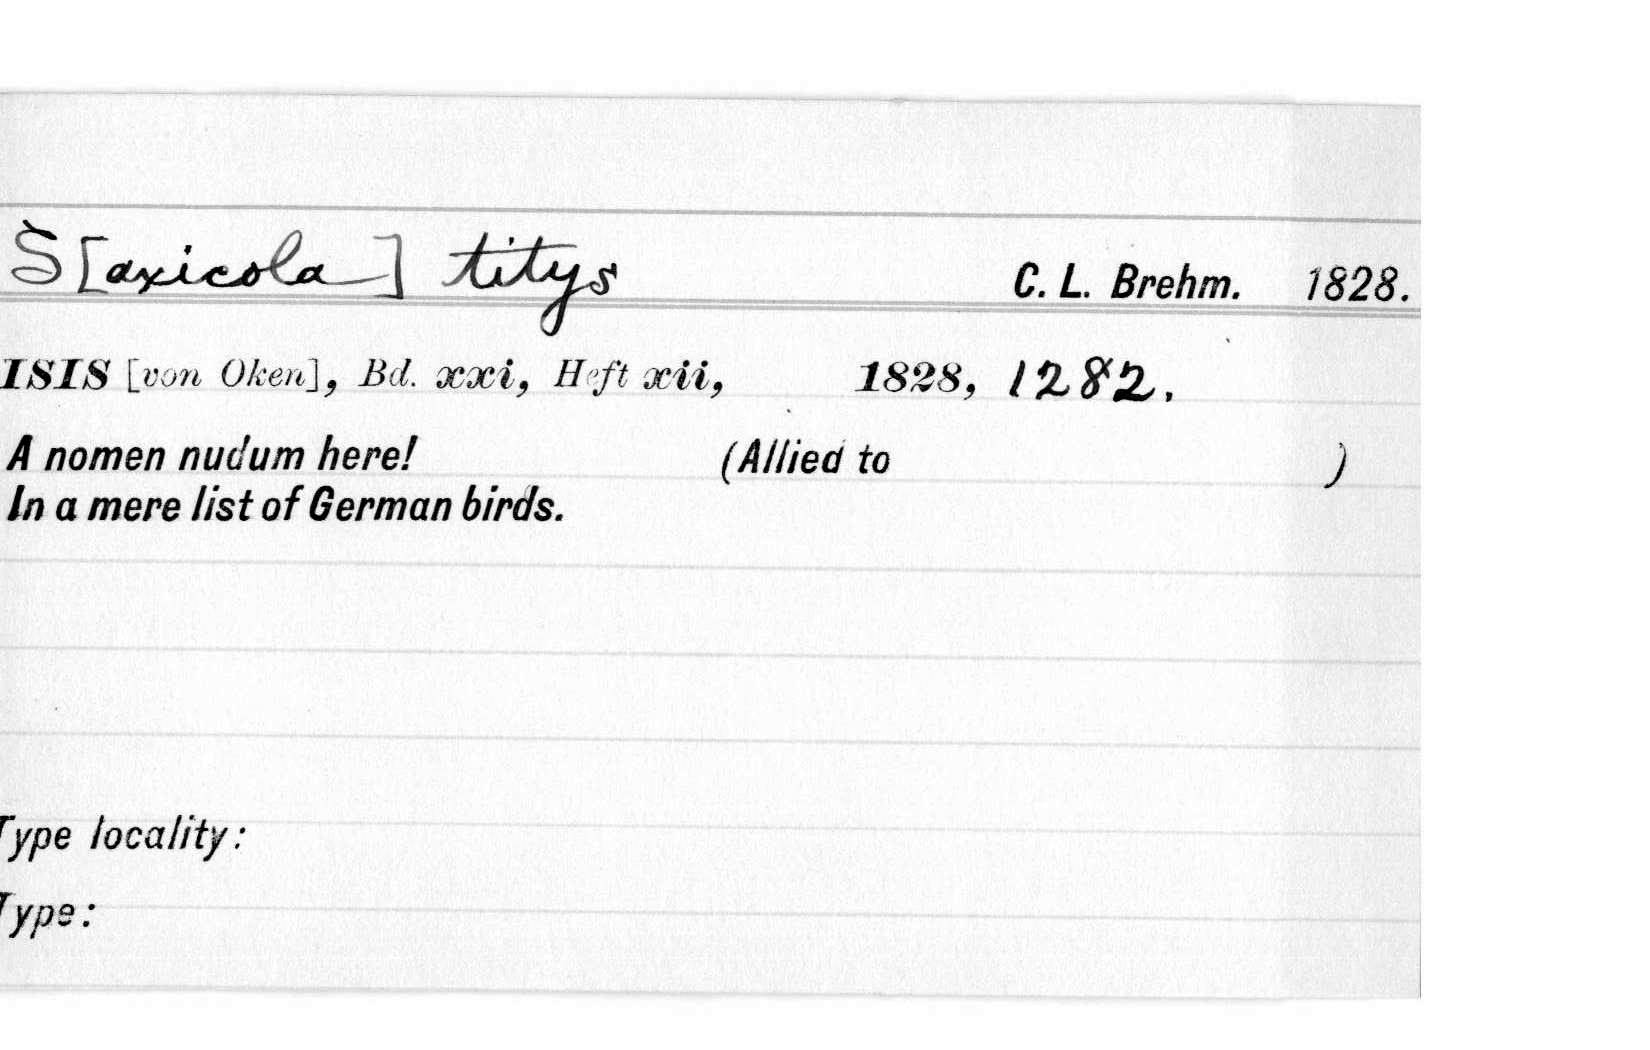 S[axicola] titys C. L. Brehm. 1828.
ISIS [von Oken], Bd. xxi, Heft xii, 1828, 1282.
A nomen nudum here! (Allied to )
In a mere list of German birds.
Type locality:
Type: